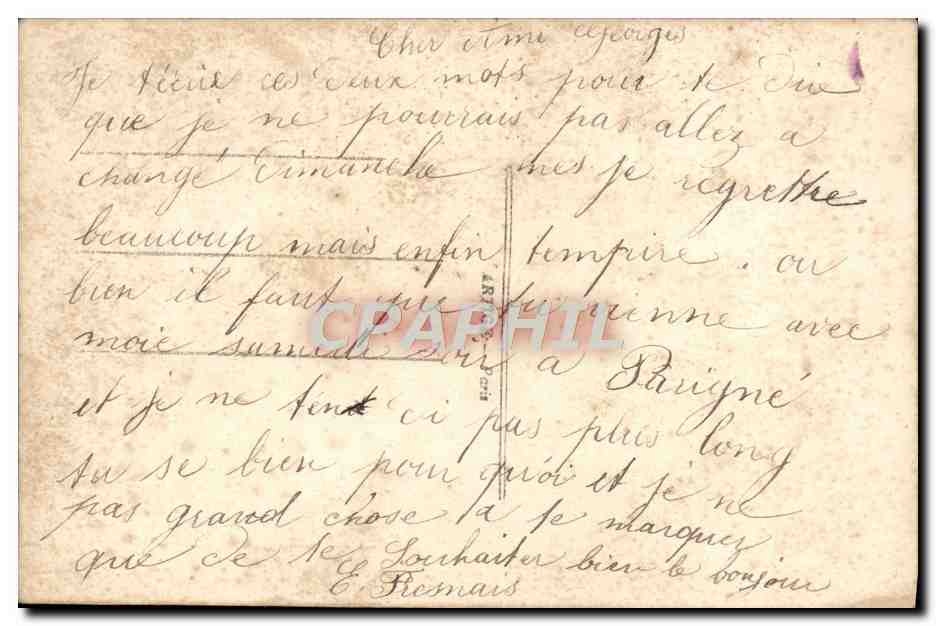 Cher Ami Georges
Je técris ces deux mots pour te dire
que je ne pourrais pas allez a
changé Dimanche mes je regrettre
beaucoup mais enfin tempire. ou
bien il faut que tu vienne avec
moie samedi soir a Parigné
et je ne tent di pas plus long
tu se bien pour quoi et je ne
pas grand chose a te marquez
que de te Souhaiter bien le bonjour
E. Presnais
ARTIGE - Paris
CPAPHIL